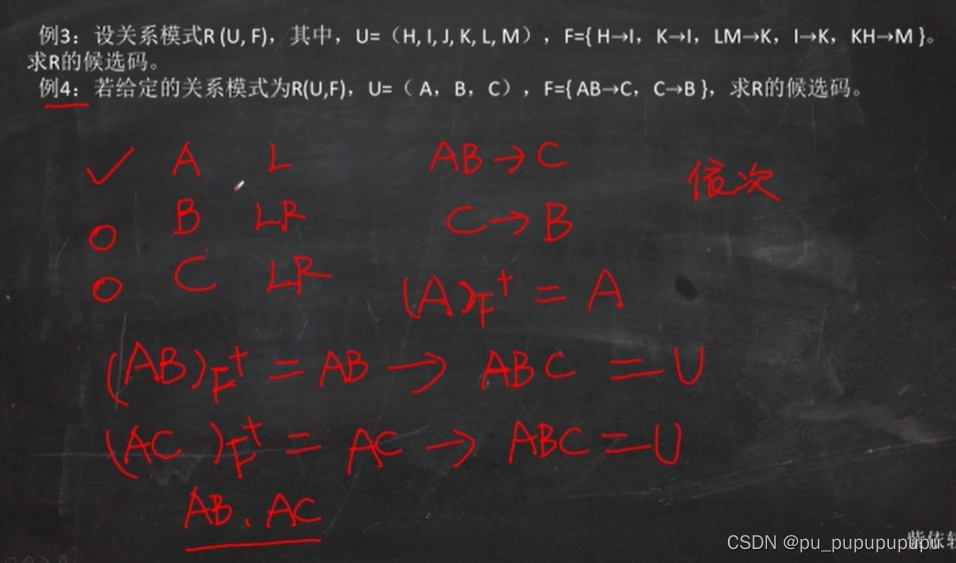 例3：设关系模式R (U, F)，其中，U=（H, I, J, K, L, M），F={ H→I，K→I，LM→K，I→K，KH→M }。
求R的候选码。
例4：若给定的关系模式为R(U,F)，U=（ A，B，C），F={ AB→C，C→B }，求R的候选码。
✓ A L AB→C 依次
○ B LR C→B
○ C LR (A)F+ = A
(AB)F+ = AB → ABC = U
(AC)F+ = AC → ABC = U
AB、AC
CSDN @pu_pupupupupu